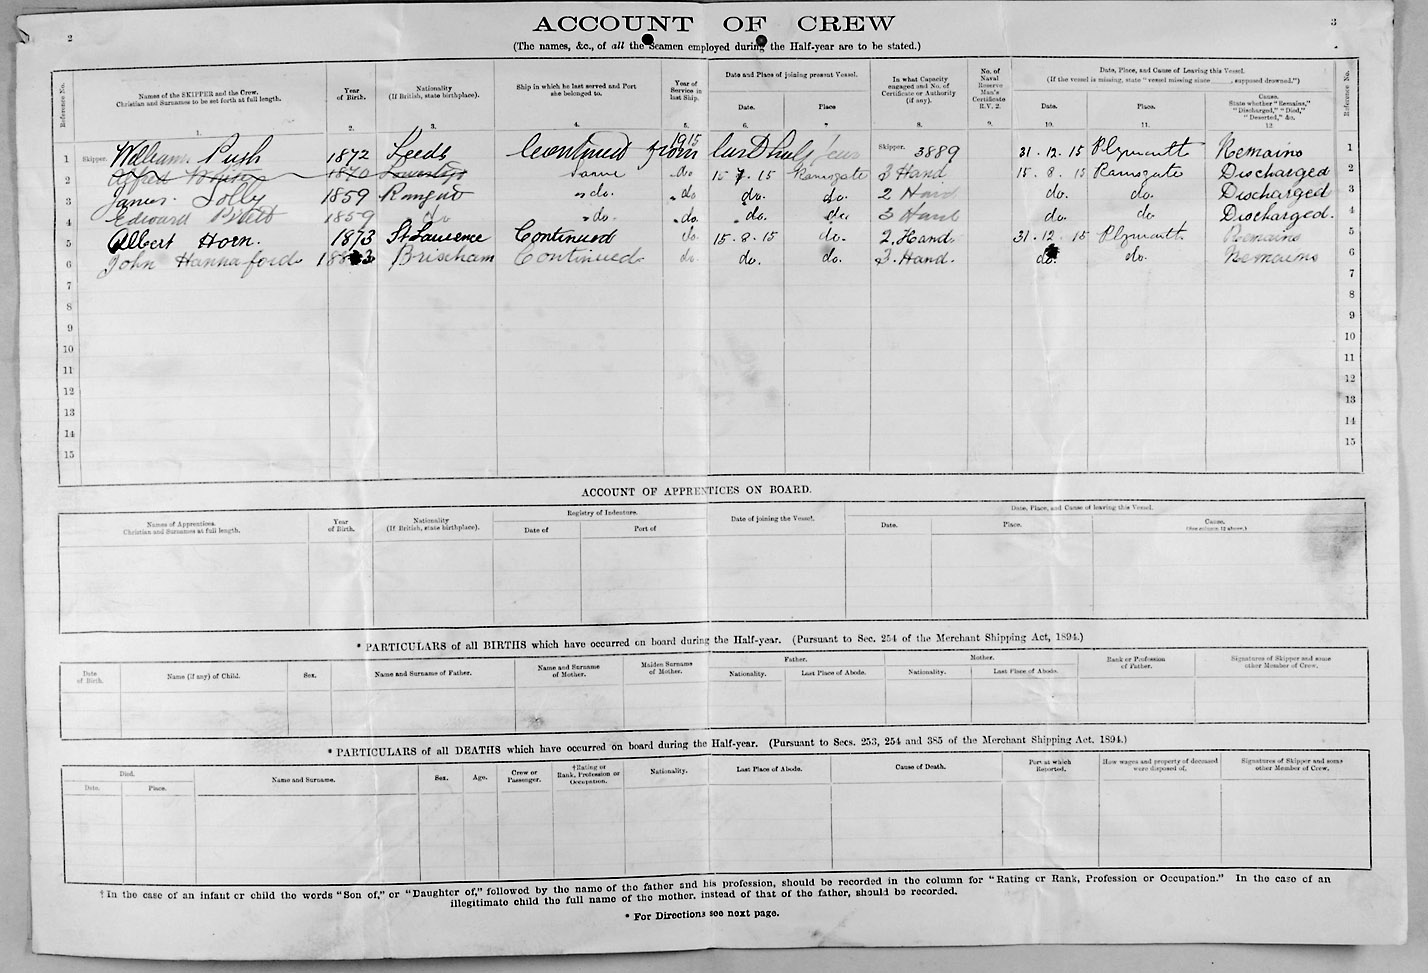 2
ACCOUNT OF CREW
3
(The names, &c., of all the Seamen employed during the Half-year are to be stated.)
Reference No.
Names of the SKIPPER and the Crew.
Christian and Surnames to be set forth at full length.
1.
Year
of Birth.
2.
Nationality
(If British, state birthplace).
3.
Ship in which he last served and Port
she belonged to.
4.
Year of
Service in
last Ship.
5.
Date and Place of joining present Vessel.
Date.
6.
Place
7
In what Capacity
engaged and No. of
Certificate or Authority
(if any).
8.
No. of
Naval
Reserve
Man's
Certificate
R.V. 2.
9.
Date, Place, and Cause of Leaving this Vessel.
(If the vessel is missing, state "vessel missing since , supposed drowned.")
Date.
10.
Place.
11.
Cause.
State whether "Remains,"
"Discharged," "Died,"
"Deserted," &c.
12
Reference No.
1 Skipper. William Push 1872 Leeds Continued from 1915 Skipper. 3889 31.12.15 Plymouth Remains 1
2 Alfred 1870 same do 15.7.15 Ramsgate 3 Hand 15.8.15 Ramsgate Discharged 2
3 James Solly 1859 do. do do. do. 2 Hand do. do. Discharged 3
4 Edward 1859 do do. do. do. do. 3 Hand do. do Discharged. 4
5 Albert Horn. 1873 St Laurence Continued do. 15.8.15 do. 2. Hand 31.12.15 Plymouth Remains 5
6 John Hannaford Brixham Continued do. do. do. 3. Hand. do. do. Remains 6
7 7
8 8
9 9
10 10
11 11
12 12
13 13
14 14
15 15
ACCOUNT OF APPRENTICES ON BOARD.
Names of Apprentices.
Christian and Surnames at full length.
Year
of Birth.
Nationality
(If British, state birthplace).
Registry of Indenture.
Date of
Port of
Date of joining the Vessel.
Date, Place, and Cause of leaving this Vessel.
Date.
Place.
Cause.
(See column 12 above.)
* PARTICULARS of all BIRTHS which have occurred on board during the Half-year. (Pursuant to Sec. 254 of the Merchant Shipping Act, 1894.)
Date
of Birth.
Name (if any) of Child.
Sex.
Name and Surname of Father.
Name and Surname
of Mother.
Maiden Surname
of Mother.
Father.
Nationality.
Last Place of Abode.
Mother.
Nationality.
Last Place of Abode.
Rank or Profession
of Father.
Signatures of Skipper and some
other Member of Crew.
* PARTICULARS of all DEATHS which have occurred on board during the Half-year. (Pursuant to Secs. 253, 254 and 385 of the Merchant Shipping Act, 1894.)
Died.
Date.
Place.
Name and Surname.
Sex.
Age.
Crew or
Passenger.
†Rating or
Rank, Profession or
Occupation.
Nationality.
Last Place of Abode.
Cause of Death.
Port at which
Reported.
How wages and property of deceased
were disposed of.
Signatures of Skipper and some
other Member of Crew.
† In the case of an infant or child the words "Son of," or "Daughter of," followed by the name of the father and his profession, should be recorded in the column for "Rating or Rank, Profession or Occupation." In the case of an
illegitimate child the full name of the mother, instead of that of the father, should be recorded.
* For Directions see next page.